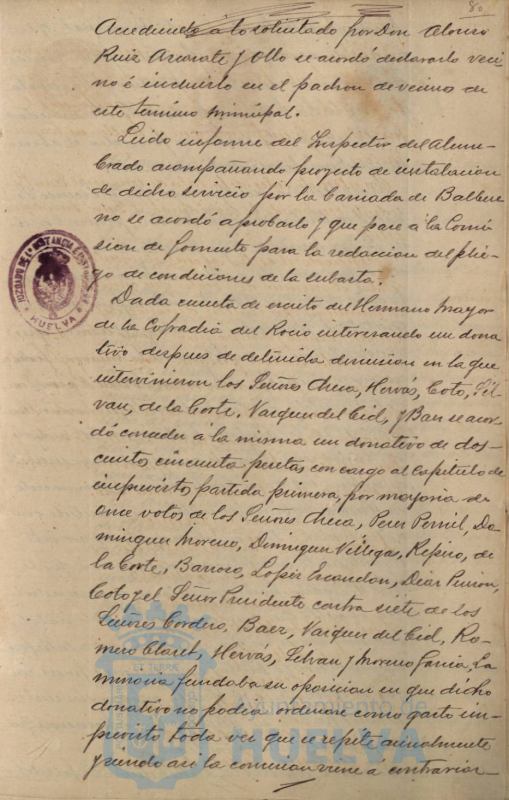 80
Accediendo a lo solicitado por Don Alonso
Ruiz Azcarate y Ollo se acordó declararlo veci-
no é incluirlo en el padron de vecinos de
este termino municipal.
Leido informe del Inspector del Alum-
brado acompañando proyecto de instalacion
de dicho servicio por la Barriada de Balbue
no se acordó aprobarlo y que pase á la Comi
sion de fomento para la redaccion del plie-
go de condiciones de la subasta.
Dada cuenta de escrito del Hermano Mayor
de la Cofradia del Rocio interesando un dona
tivo despues de detenida discusion en la que
intervinieron los Señores Checa, Hervás, Coto, Sil-
van, de la Corte, Vazquez del Cid, y Baez se acor
dó conceder á la misma un donativo de dos-
cientas cincuenta pesetas con cargo al capitulo de
imprevistos partida primera, por mayoria de
once votos de los Señores Checa, Perez Pernil, Do
minguez Moreno, Dominguez Villegas, Repiso, de
la Corte, Barroso, Lopez Escandon, Diaz
Coto y el Señor Presidente contra siete de los
Señores Cordero, Baez, Vazquez del Cid, Ro-
mero Claret, Hervás, Silvan y Moreno Garcia, La
minoria fundaba su oposicion en que dicho
donativo no podia ordenarse como gasto im-
previsto toda vez que se repite anualmente
y siendo asi la concesion viene á contrariar-
JUZGADO DE 1ª INSTANCIA É INSTRUCCION
HUELVA
Ayuntamiento de
HUELVA